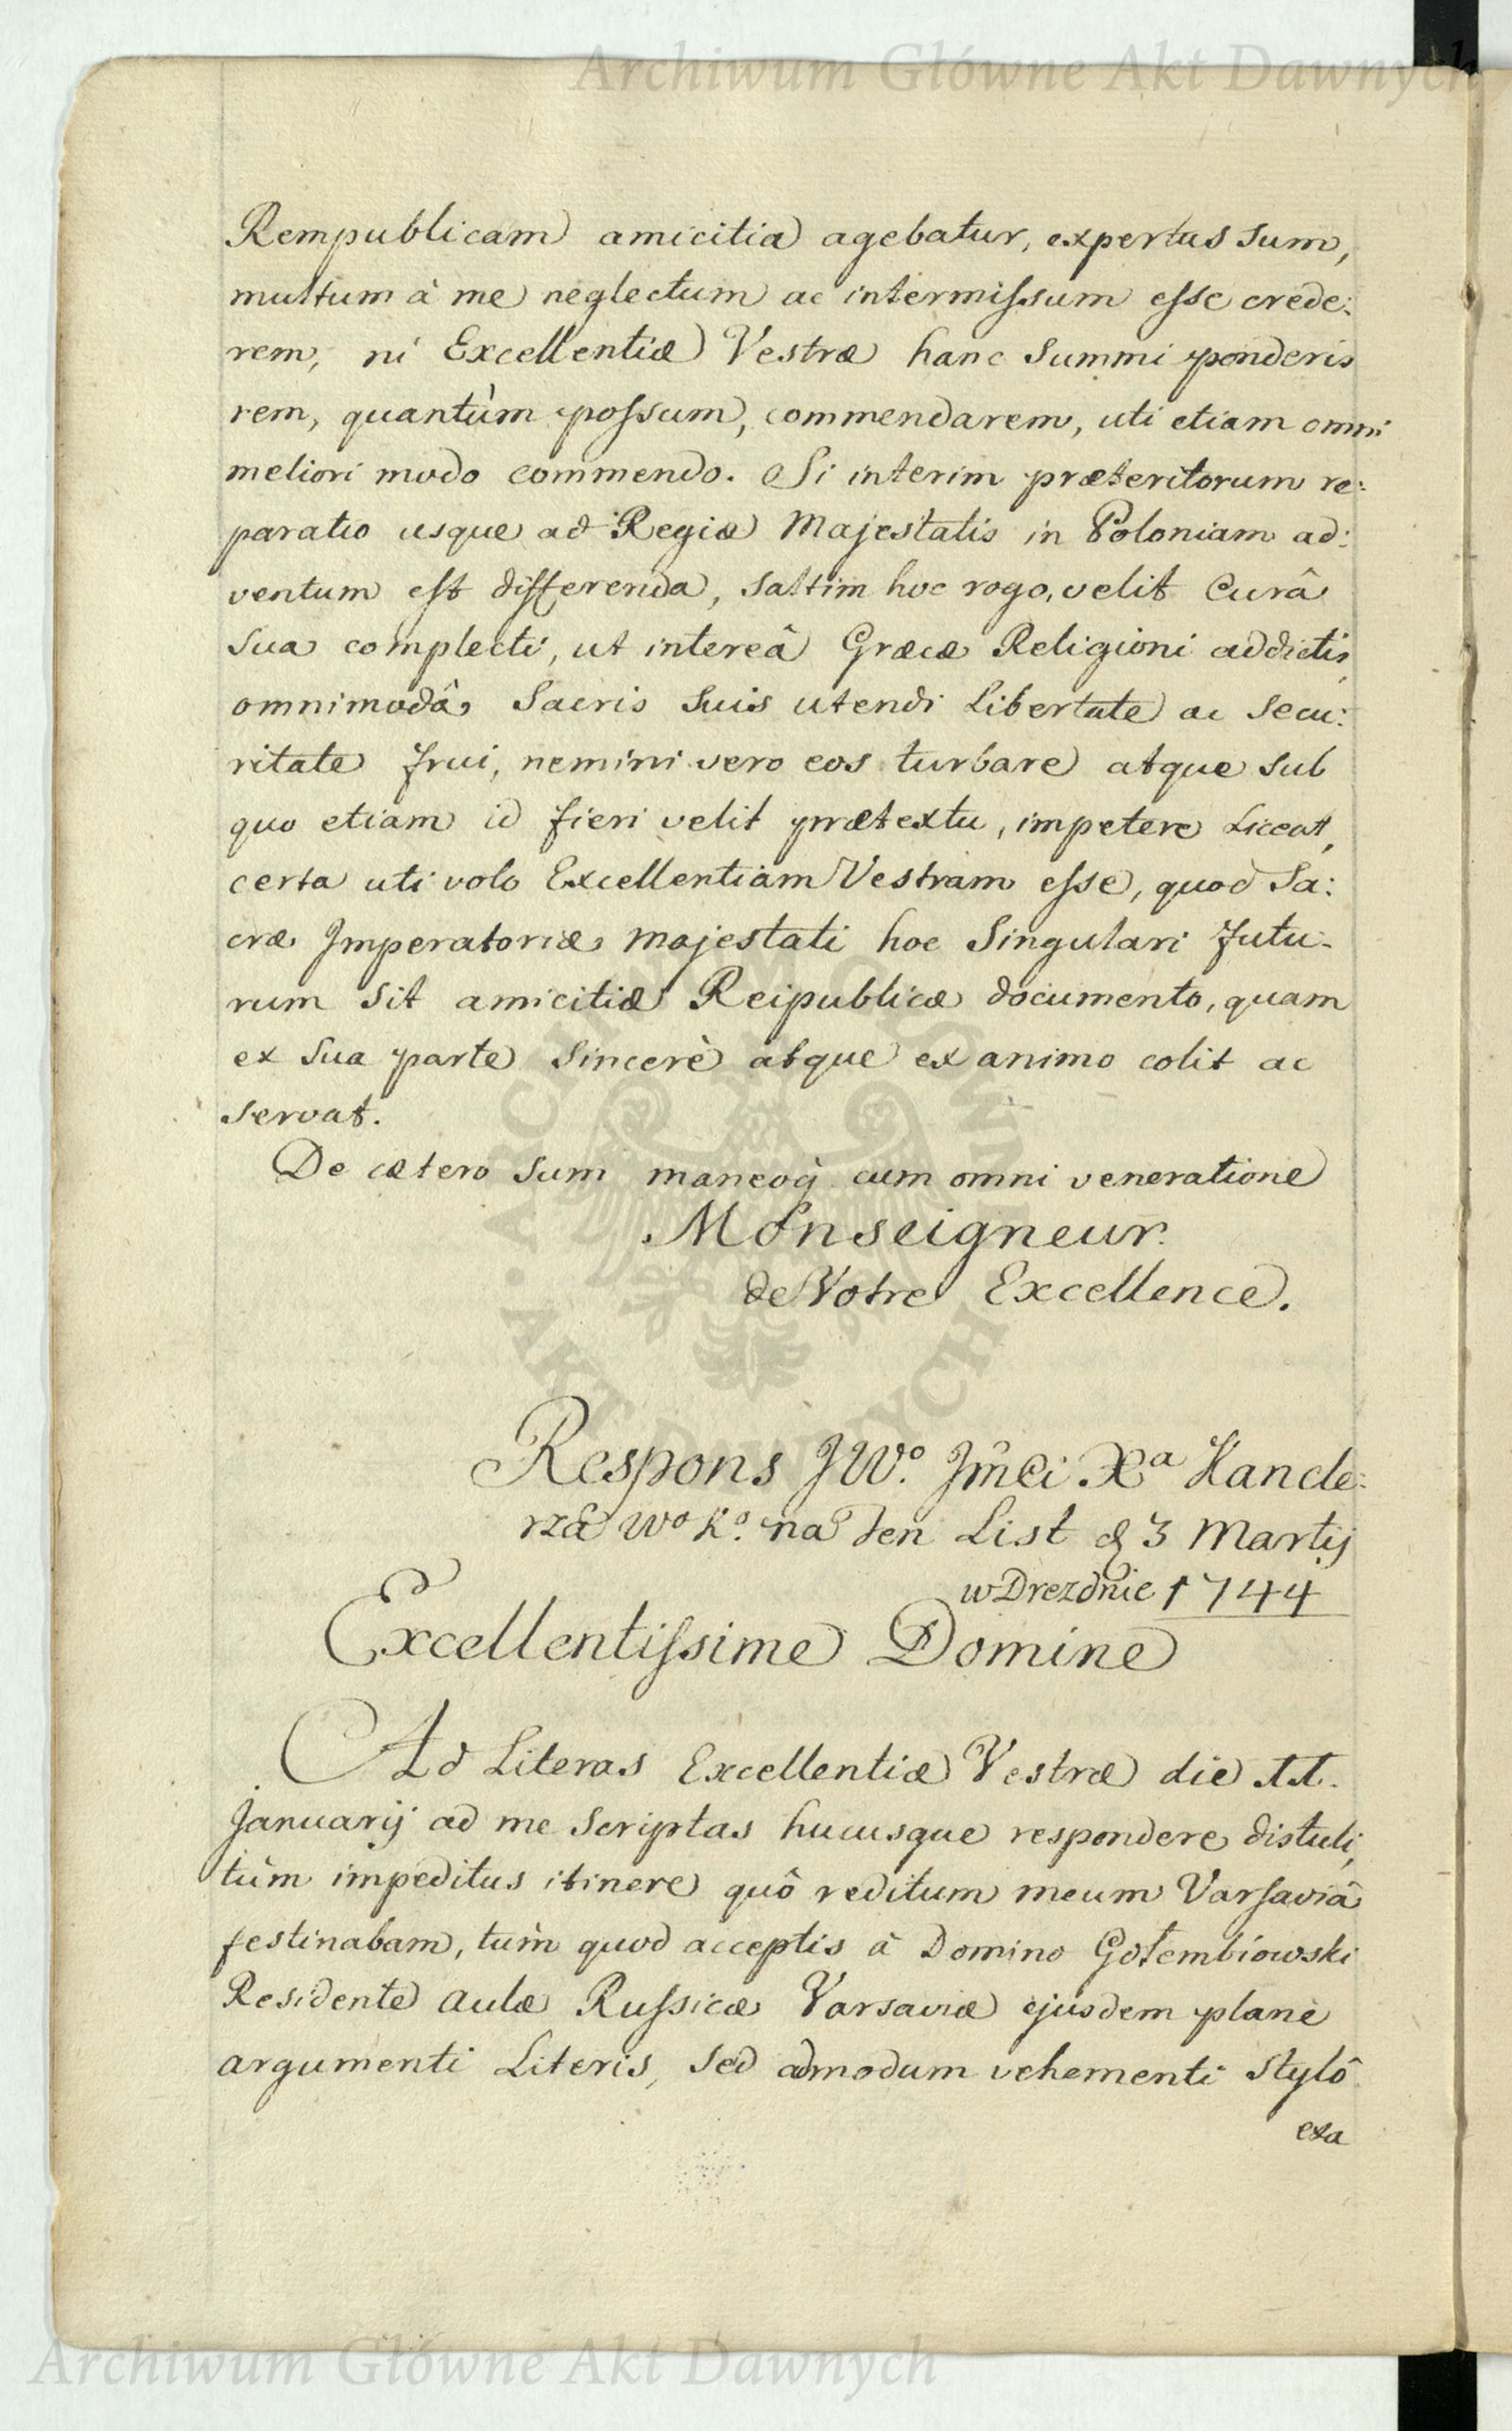 Archiwum Główne Akt Dawnych
Rempublicam amicitia agebatur, expertus sum,
multum à me neglectum ac intermissum esse crede:
rem, ni Excellentiæ Vestræ hanc Summi ponderis
rem, quantùm possum, commendarem, uti etiam omni
meliori modo commendo. Si interim præteritorum re:
paratio usque ad Regiæ Majestatis in Poloniam ad:
ventum est differenda, saltim hoc rogo, velit Curâ
sua complecti, ut intereâ Græcæ Religioni addictis
omnimodâ Sacris Suis utendi Libertate ac Secu:
ritate frui, nemini vero eos turbare atque sub
quo etiam id fieri velit prætextu, impetere Liceat,
certa uti volo Excellentiam Vestram esse, quod Sa:
cræ Imperatoriæ Majestati hoc Singulari futu-
rum Sit amicitiæ Reipublicæ documento, quam
ex Sua parte Sincerè atque ex animo colit ac
servat.
De cætero Sum maneoq̀ cum omni veneratione
Monseigneur.
de Votre Excellence.
Respons JWº. Jm̂ci Xª Kancle:
rzâ Wº Kº. na ten List d 3 Martij
w Dreznie 1744
Excellentissime Domine
Ad Literas Excellentiæ Vestræ die 11.
Januarij ad me Scriptas hucusque respondere distuli,
tùm impeditus itinere quô reditum meum Varsaviâ
festinabam, tùm quod acceptis à Domino Gołembiowski
Residente Aulæ Russicæ Varsaviæ ejusdem planè
argumenti Literis, Sed admodum vehementi Stylô
exa
ARCHIWUM GŁÓWNE
AKT DAWNYCH
Archiwum Główne Akt Dawnych